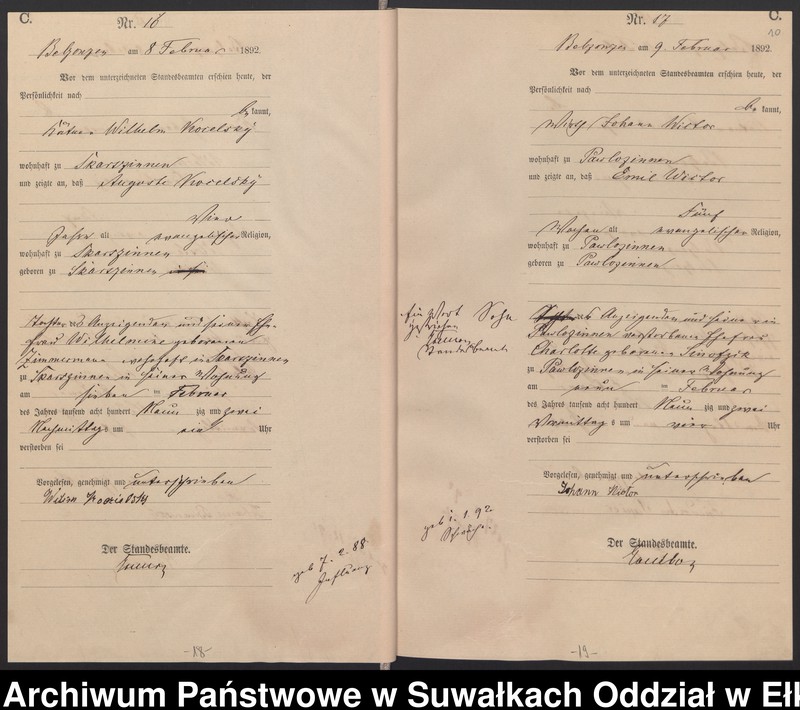 C.
Nr. 16
am 8 Februar 1892.
Vor dem unterzeichneten Standesbeamten erschien heute, der
Persönlichkeit nach
be kannt,
Wilhelm
wohnhaft zu Skarszinnen
und zeigte an, daß Auguste
Vier
Jahre alt evangelischer Religion,
wohnhaft zu Skarszinnen
geboren zu Skarszinnen
Tochter des Anzeigenden und seiner Ehe-
frau Wilhelmine geborenen
wohnhaft in Skarszinnen
zu Skarszinnen in seiner Wohnung
am sieben ten Februar
des Jahres tausend acht hundert Neun zig und zwei
Nachmittags um ein Uhr
verstorben sei
Vorgelesen, genehmigt und unterschrieben
Der Standesbeamte.
geb 7. 2. 88
-18-
C.
10
Nr. 17
am 9 Februar 1892
Vor dem unterzeichneten Standesbeamten erschien heute, der
Persönlichkeit nach
be kannt,
Wirth Johann Wistor
wohnhaft zu Pawlozinnen
und zeigte an, daß Emil Wistor
Fünf
Wochen alt evangelischer Religion,
wohnhaft zu Pawlozinnen
geboren zu Pawlozinnen
Ein Wort
gestrichen
Standesbeamte
Sohn
des Anzeigenden und seiner in
Pawlozinnen verstorbenen Ehefrau
Charlotte geborenen
zu Pawlozinnen in seiner Wohnung
am neun ten Februar
des Jahres tausend acht hundert Neun zig und zwei
Vormittag s um vier Uhr
verstorben sei
Vorgelesen, genehmigt und unterschrieben
Johann Wistor
geb 1. 1. 92
Der Standesbeamte.
-19-
Archiwum Państwowe w Suwałkach Oddział w Ełk